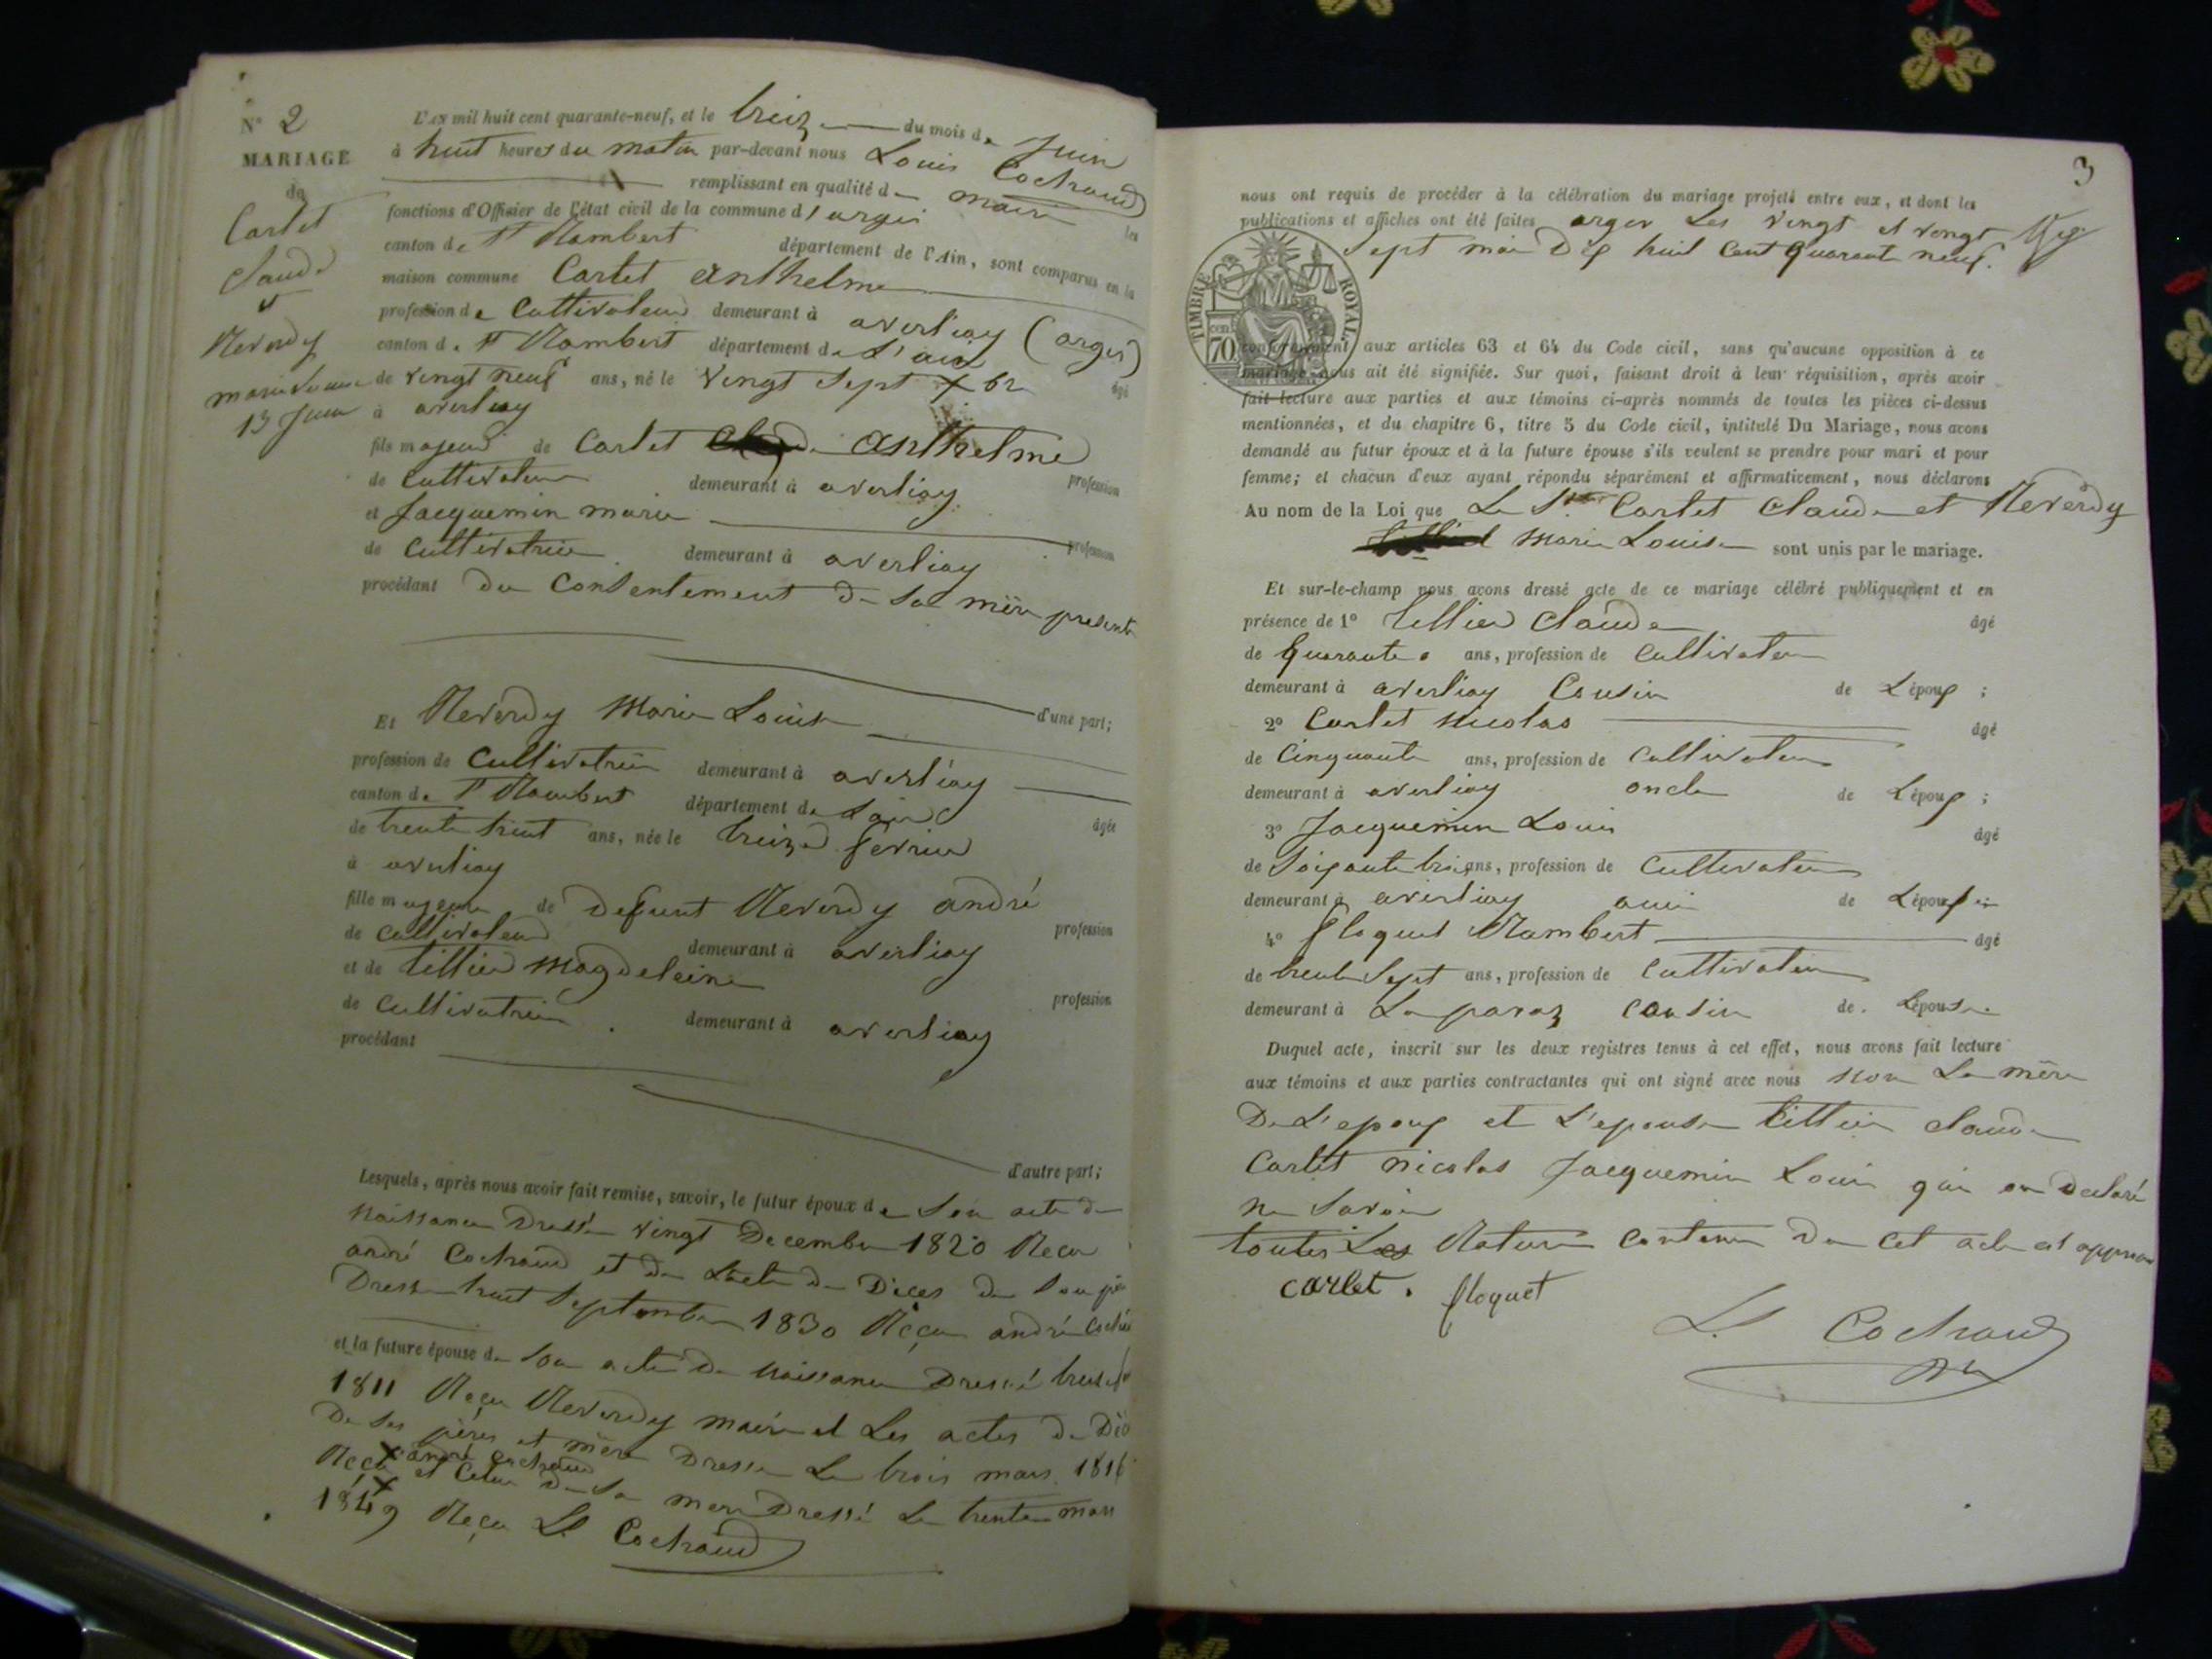 N° 2
MARIAGE
de
Carlet
Claude
et
Reverdy
marie Louise
13 Juin
L'AN mil huit cent quarante-neuf, et le treize du mois de Juin
à huit heures du matin par-devant nous Louis Cochaud
remplissant en qualité de maire les
fonctions d'Officier de l'état civil de la commune d'argis
canton de St Rambert département de l'Ain, sont comparus en la
maison commune Carlet anthelme
profession de Cultivateur demeurant à averliay (argis)
canton de St Rambert département de L'ain âgé
de vingt neuf ans, né le vingt sept Xbr
à averliay
fils majeur de Carlet anthelme profession
de Cultivateur demeurant à averliay
et Jacquemin marie profession
de Cultivatrice demeurant à averliay
procédant du Consentement de sa mère presente
d'une part;
Et Reverdy Marie Louise
profession de Cultivatrice demeurant à averliay
canton de St Rambert département de Lain âgée
de trente huit ans, née le treize fevrier
à averliay
fille majeure de defunt Reverdy andré profession
de cultivateur demeurant à averliay
et de tillier magdeleine profession
de cultivatrice demeurant à averliay
procédant
d'autre part;
Lesquels, après nous avoir fait remise, savoir, le futur époux de son acte de
naissance Dressé vingt Decembre 1820 Reçu
andré Cochaud et de L'acte de Dèces de son
Dresse huit Septembre 1830 Reçu andré
et la future épouse de son acte de naissance Dressé
1811 Reçu Reverdy maire et Les actes de
De ses pères et mère Dresse Le trois mars 1816
Reçu X andré cochaud
X et Celui de sa mere Dressé Le trente mars
1849 Reçu Ls Cochaud
3
nous ont requis de procéder à la célébration du mariage projeté entre eux, et dont les
publications et affiches ont été faites argis Les vingt et vingt
Sept mai Dix huit Cent quarante neuf.
TIMBRE ROYAL
70 cent
conformément aux articles 63 et 64 du Code civil, sans qu'aucune opposition à ce
mariage nous ait été signifiée. Sur quoi, faisant droit à leur réquisition, après avoir
fait lecture aux parties et aux témoins ci-après nommés de toutes les pièces ci-dessus
mentionnées, et du chapitre 6, titre 5 du Code civil, intitulé Du Mariage, nous avons
demandé au futur époux et à la future épouse s'ils veulent se prendre pour mari et pour
femme; et chacun d'eux ayant répondu séparément et affirmativement, nous déclarons
Au nom de la Loi que Le Sr Carlet Claude et Reverdy
Marie Louise sont unis par le mariage.
Et sur-le-champ nous avons dressé acte de ce mariage célébré publiquement et en
présence de 1° tillier Claude âgé
de quarante ans, profession de Cultivateur
demeurant à averliay Cousin de L'époux ;
2° Carlet nicolas âgé
de Cinquante ans, profession de Cultivateur
demeurant à averliay oncle de L'époux ;
3° Jacquemin Louis âgé
de Soixante trois ans, profession de Cultivateur
demeurant à averliay ami de L'époux ;
4° floquet Rambert âgé
de trente Sept ans, profession de Cultivateur
demeurant à La paraz cousin de L'épouse
Duquel acte, inscrit sur les deux registres tenus à cet effet, nous avons fait lecture
aux témoins et aux parties contractantes qui ont signé avec nous non La mère
De L'epoux et L'epouse tillier claude
Carlet nicolas Jacquemin Louis qui on Declaré
ne Savoir
toutes Les Rature Contenu Dan Cet acte et
carlet. floquet
Ls Cochaud